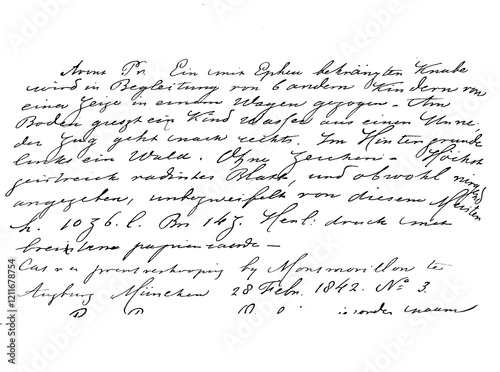 Avant Pr. Ein mit Epheu bekränzten Knabe
wird in Begleitung von 6 andern Kindern von
einer Zeige in einem Wagen gezogen - Am
Boden giesst ein Kind Wasser aus einer Urne.
der Zug geht nach rechts. Im Hintergrunde
links ein Wald. Ohne Zeichen - Höchst
geistreich radirtes Blatt, und obwohl nirgend
angegeben, unbezweifelt von diesem Meister
h. 1036. l. Br 147. Herl: druck mit
breitem papierrande -
Cas v a prentverkooping by Monsmorillon te
Augburg München 28 Febr. 1842. No 3.
is zonder naam
Adobe Stock | #1211678754